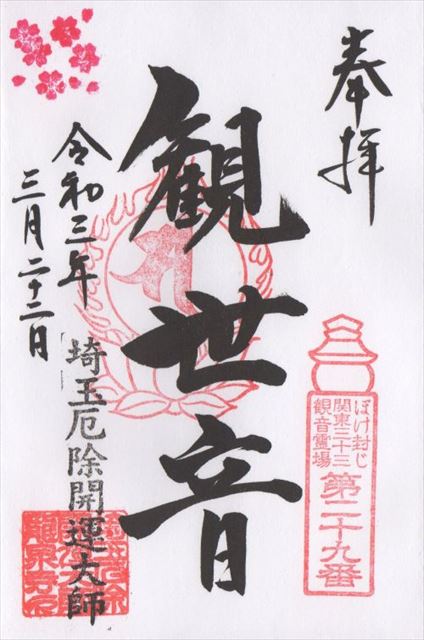 奉拝
ぼけ封じ
関東三十三
観音霊場
第二十九番
観世音
令和三年
三月二十二日
埼玉厄除開運大師